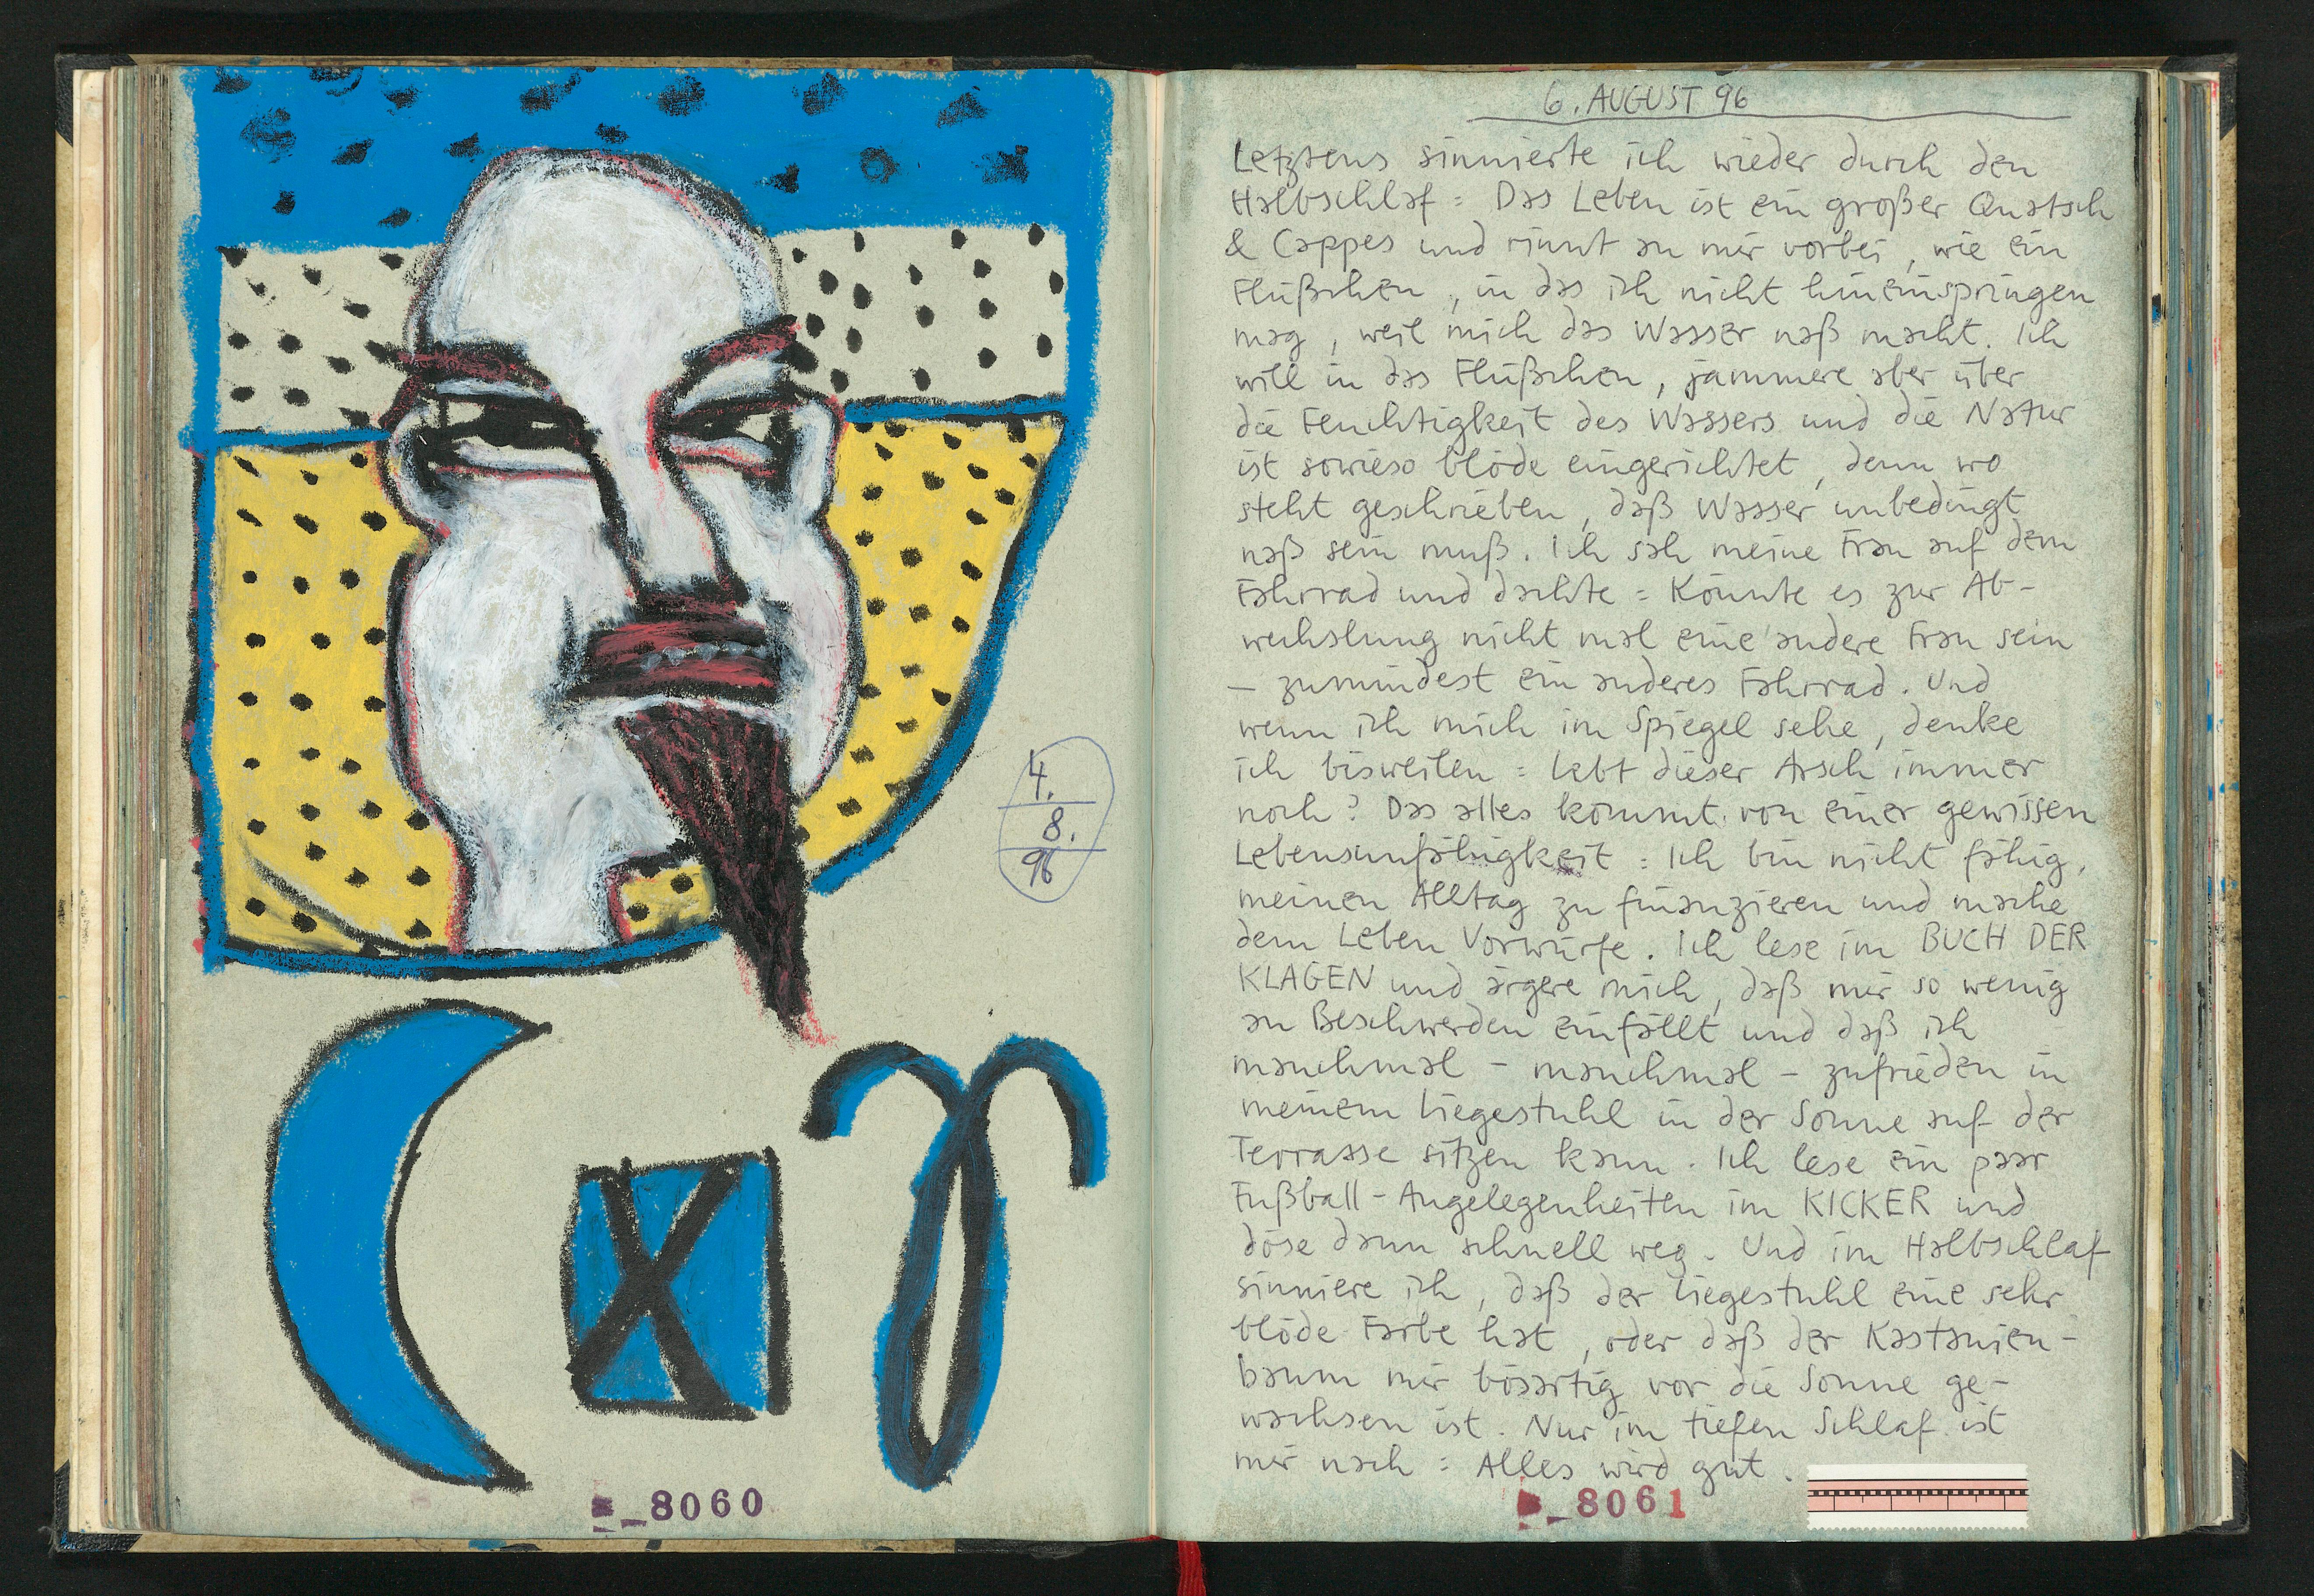 4.
8.
96
_8060
6. AUGUST 96
Letztens sinnierte ich wieder durch den
Halbschlaf : Das Leben ist ein großer Quatsch
& Cappes und rinnt an mir vorbei, wie ein
Flüßchen, in das ich nicht hineinspringen
mag, weil mich das Wasser naß macht. Ich
will in das Flüßchen, jammere aber über
die Feuchtigkeit des Wassers und die Natur
ist sowieso blöde eingerichtet, denn wo
steht geschrieben, daß Wasser unbedingt
naß sein muß. Ich sah meine Frau auf dem
Fahrrad und dachte : Könnte es zur Ab-
wechslung nicht mal eine andere Frau sein
– zumindest ein anderes Fahrrad. Und
wenn ich mich im Spiegel sehe, denke
ich bisweilen : lebt dieser Arsch immer
noch? Das alles kommt von einer gewissen
Lebensunfähigkeit : Ich bin nicht fähig,
meinen Alltag zu finanzieren und mache
dem Leben Vorwürfe. Ich lese im BUCH DER
KLAGEN und ärgere mich, daß mir so wenig
an Beschwerden einfällt und daß ich
manchmal – manchmal – zufrieden in
meinem Liegestuhl in der Sonne auf der
Terrasse sitzen kann. Ich lese ein paar
Fußball-Angelegenheiten im KICKER und
döse dann schnell weg. Und im Halbschlaf
sinniere ich, daß der Liegestuhl eine sehr
blöde Farbe hat, oder daß der Kastanien-
baum mir bösartig vor die Sonne ge-
wachsen ist. Nur im tiefen Schlaf ist
mir nach : Alles wird gut.
_8061